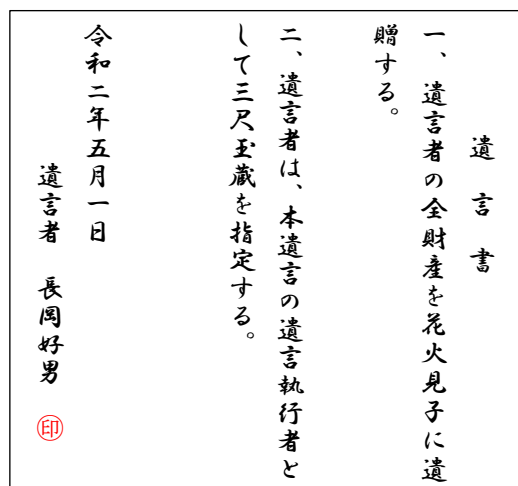 遺言書
一、遺言者の全財産を花火見子に遺
贈する。
二、遺言者は、本遺言の遺言執行者と
して三尺玉蔵を指定する。
令和二年五月一日
遺言者　長岡好男　印